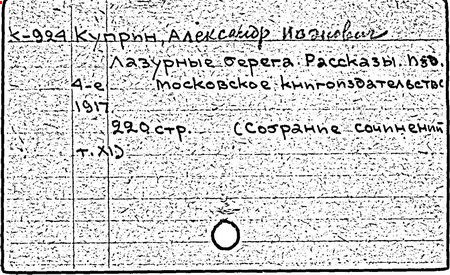 К-924 Куприн, Александр Иванович
Лазурные берега. Рассказы. Изд.
4-е Московское книгоиздательство
1917
220 стр. (Собрание сочинений
т. XI)